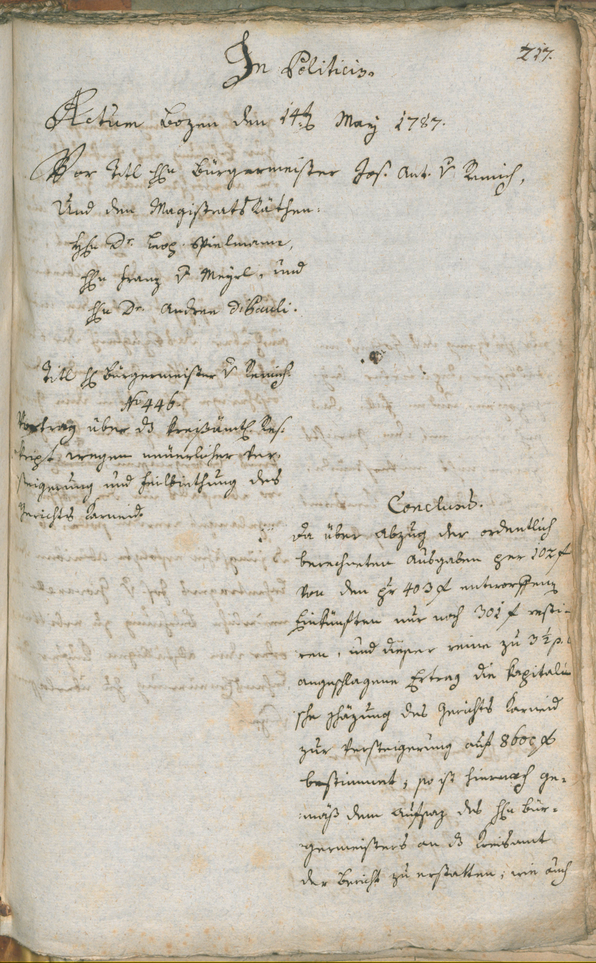 In Politicis.
217.
Actum Bozen den 14t May 1787.
Vor Titl Hln Bürgermeister Jos. Ant. v Remich,
Und den Magistrats Räthen.
Hln Dr. Leop. Spielmann,
Hln Franz v Mayrl. und
Hln Dr. Andree di Pauli.
Titl H Bürgermeister v Remich.
No 446.
Vortrag über ds kreisämtl. Res-
kript wegen neuerlicher Ver-
steigerung und Feilbiethung des
Gerichts Karneid.
Conclus.
Da über Abzug der ordentlich
berechneten Ausgaben per 102 f
von den pr 403 f entworffenen
Einkünften nur noch 301 f resti-
ren, und dieser reine zu 3½ p.
angeschlagene Ertrag die kapitali-
sche Schäzung des Gerichts Karneid
zur Versteigerung auf 8600 f
bestimmet; so ist hiernach ge-
mäß dem Aufsaz des Hln Bür-
germeisters an ds Kreisamt
der Bericht zu erstatten; wie auch